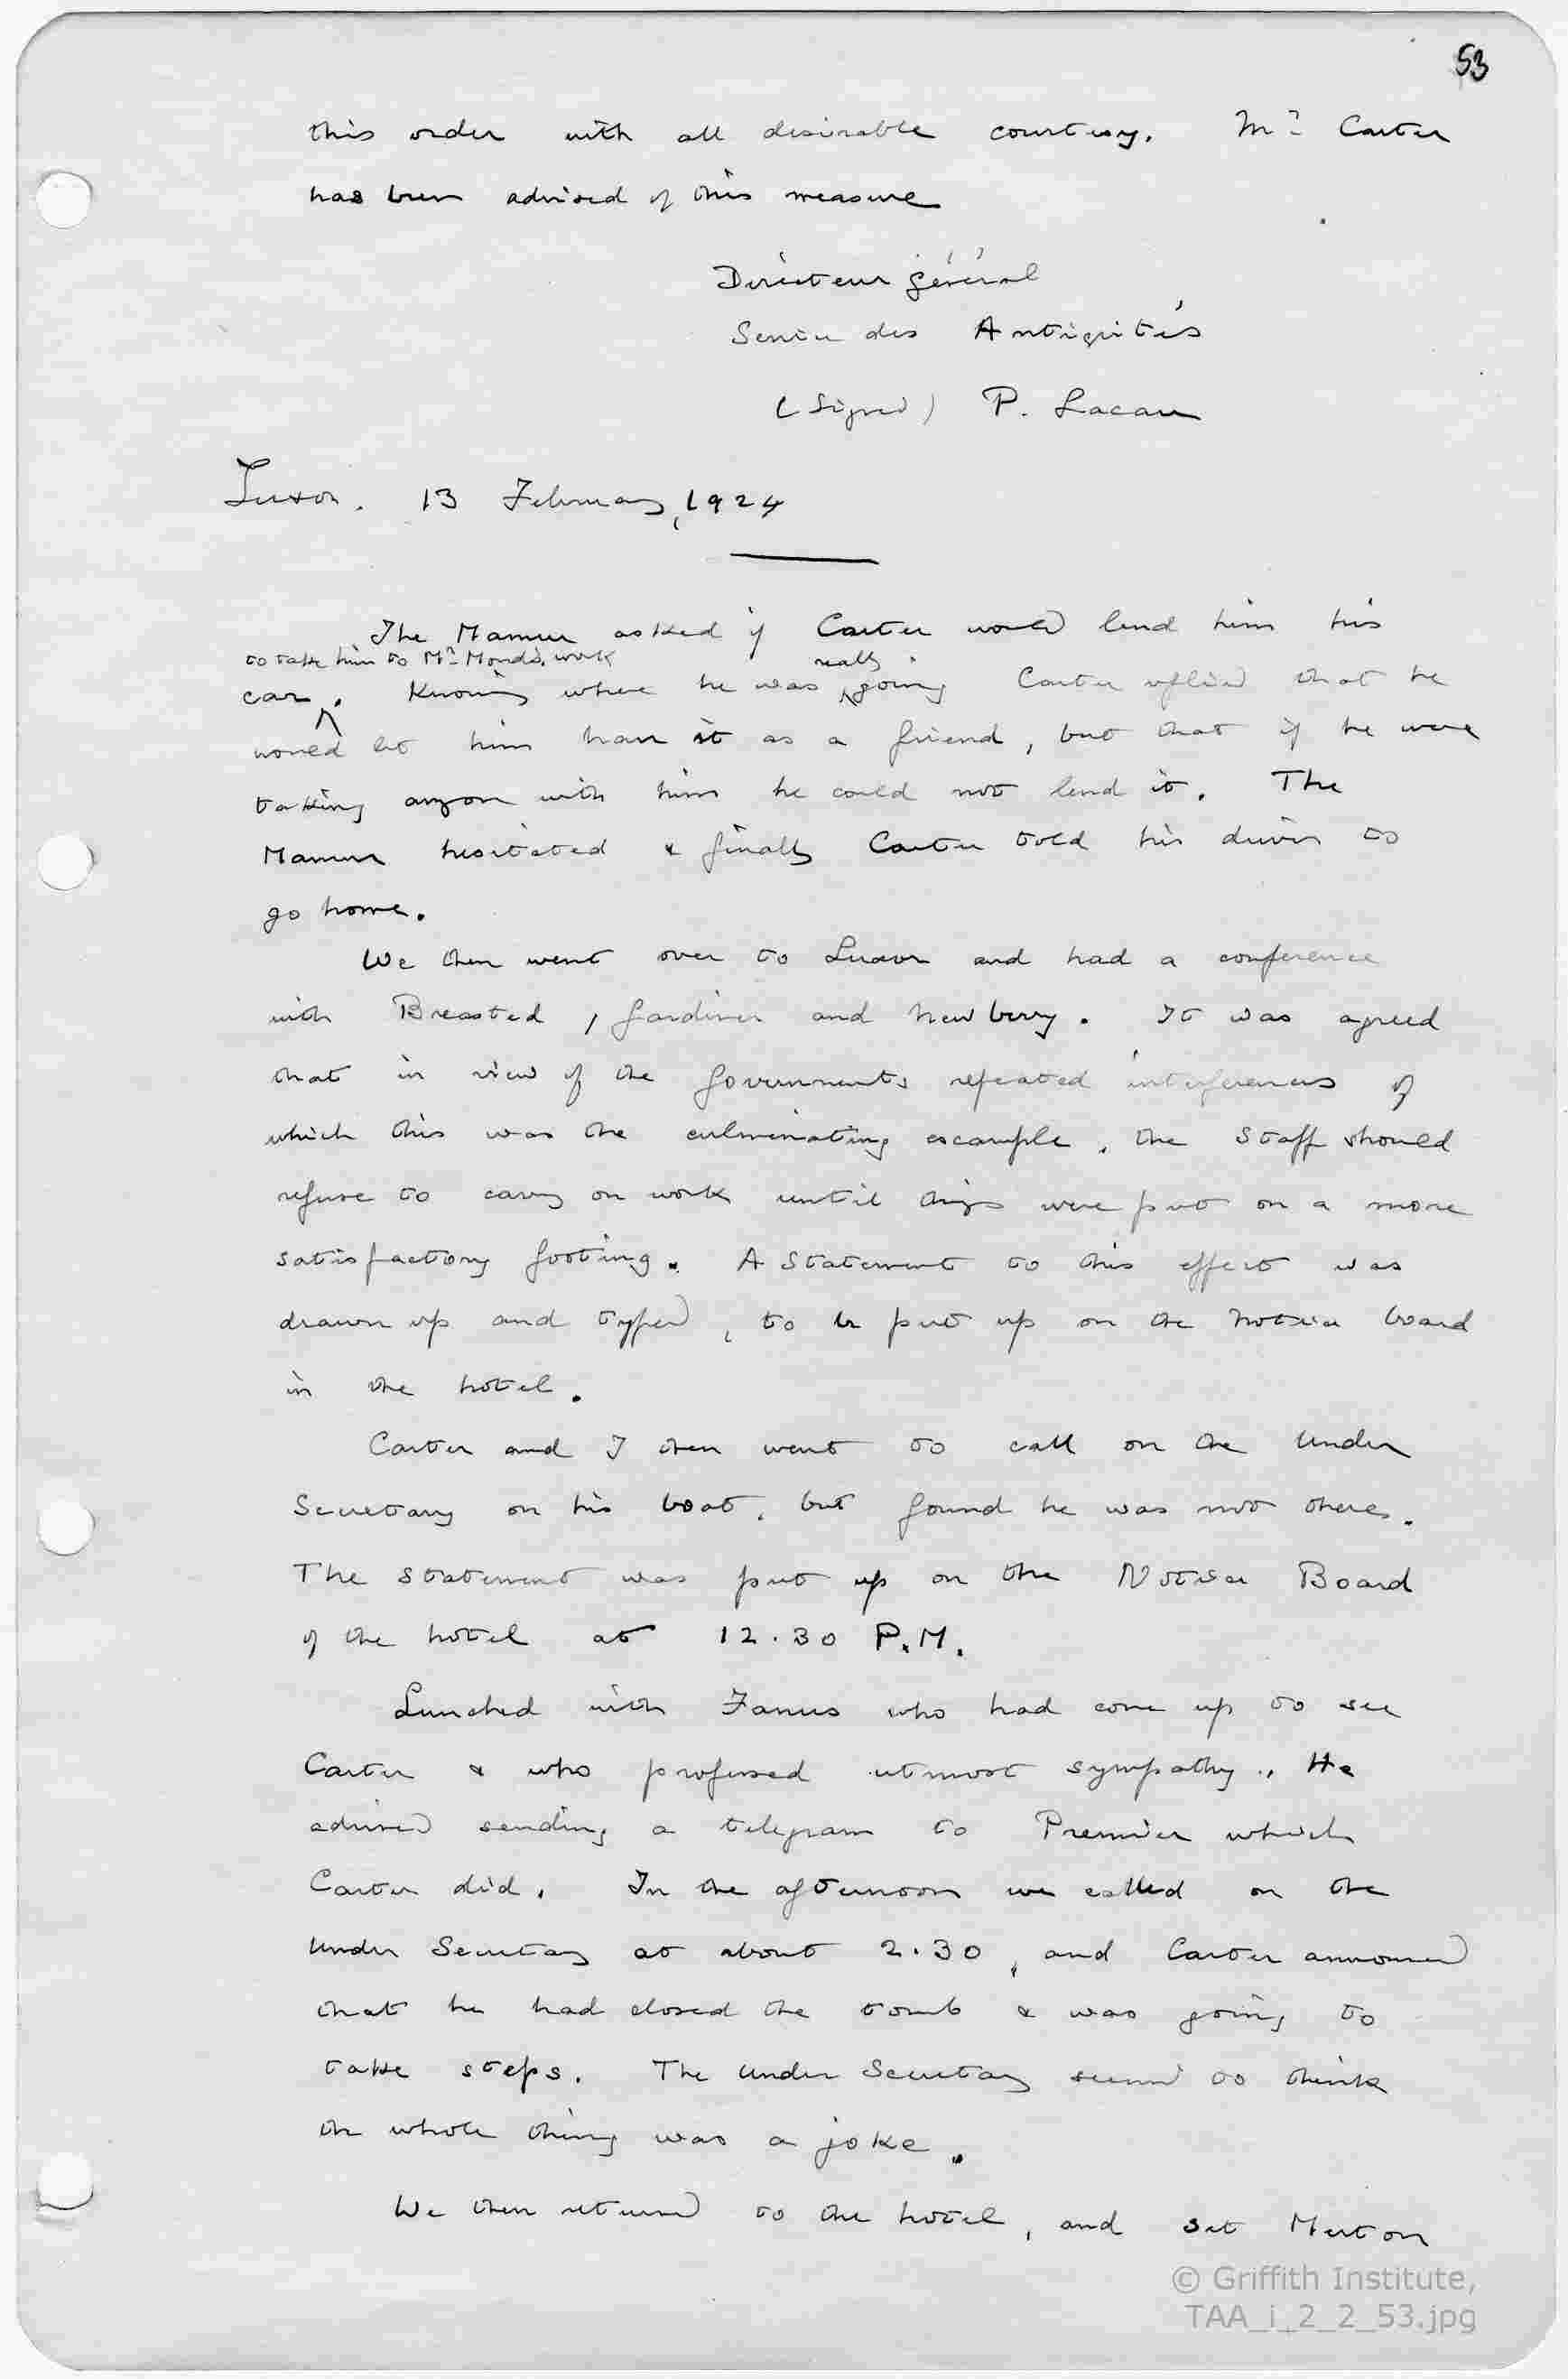 53
this order with all desirable courtesy. Mr Carter
has been advised of this measure
Directeur Général
Service des Antiquités
(Signed) P. Lacau
Luxor. 13 February, 1924
The Mamur asked if Carter would lend him his
to take him to Mr Mond's work
really
car. Knowing where he was going Carter replied that he
would let him have it as a friend, but that if he were
taking anyone with him he could not lend it. The
Mamur hesitated & finally Carter told his driver to
go home.
We then went over to Luxor and had a conference
with Breasted, Gardiner and Newberry. It was agreed
that in view of the Governments repeated interferences of
which this was the culminating example, the Staff should
refuse to carry on work until things were put on a more
satisfactory footing. A Statement to this effect was
drawn up and typed, to be put up on the notice board
in the hotel.
Carter and I then went to call on the Under
Secretary on his boat, but found he was not there.
The statement was put up on the Notice Board
of the hotel at 12.30 P.M.
Lunched with Fanus who had come up to see
Carter & who professed utmost sympathy. He
advised sending a telegram to Premier which
Carter did. In the afternoon we called on the
Under Secretary at about 2.30, and Carter announced
that he had closed the tomb & was going to
take steps. The Under Secretary seemed to think
the whole thing was a joke.
We then returned to the hotel, and set Merton
© Griffith Institute,
TAA_i_2_2_53.jpg